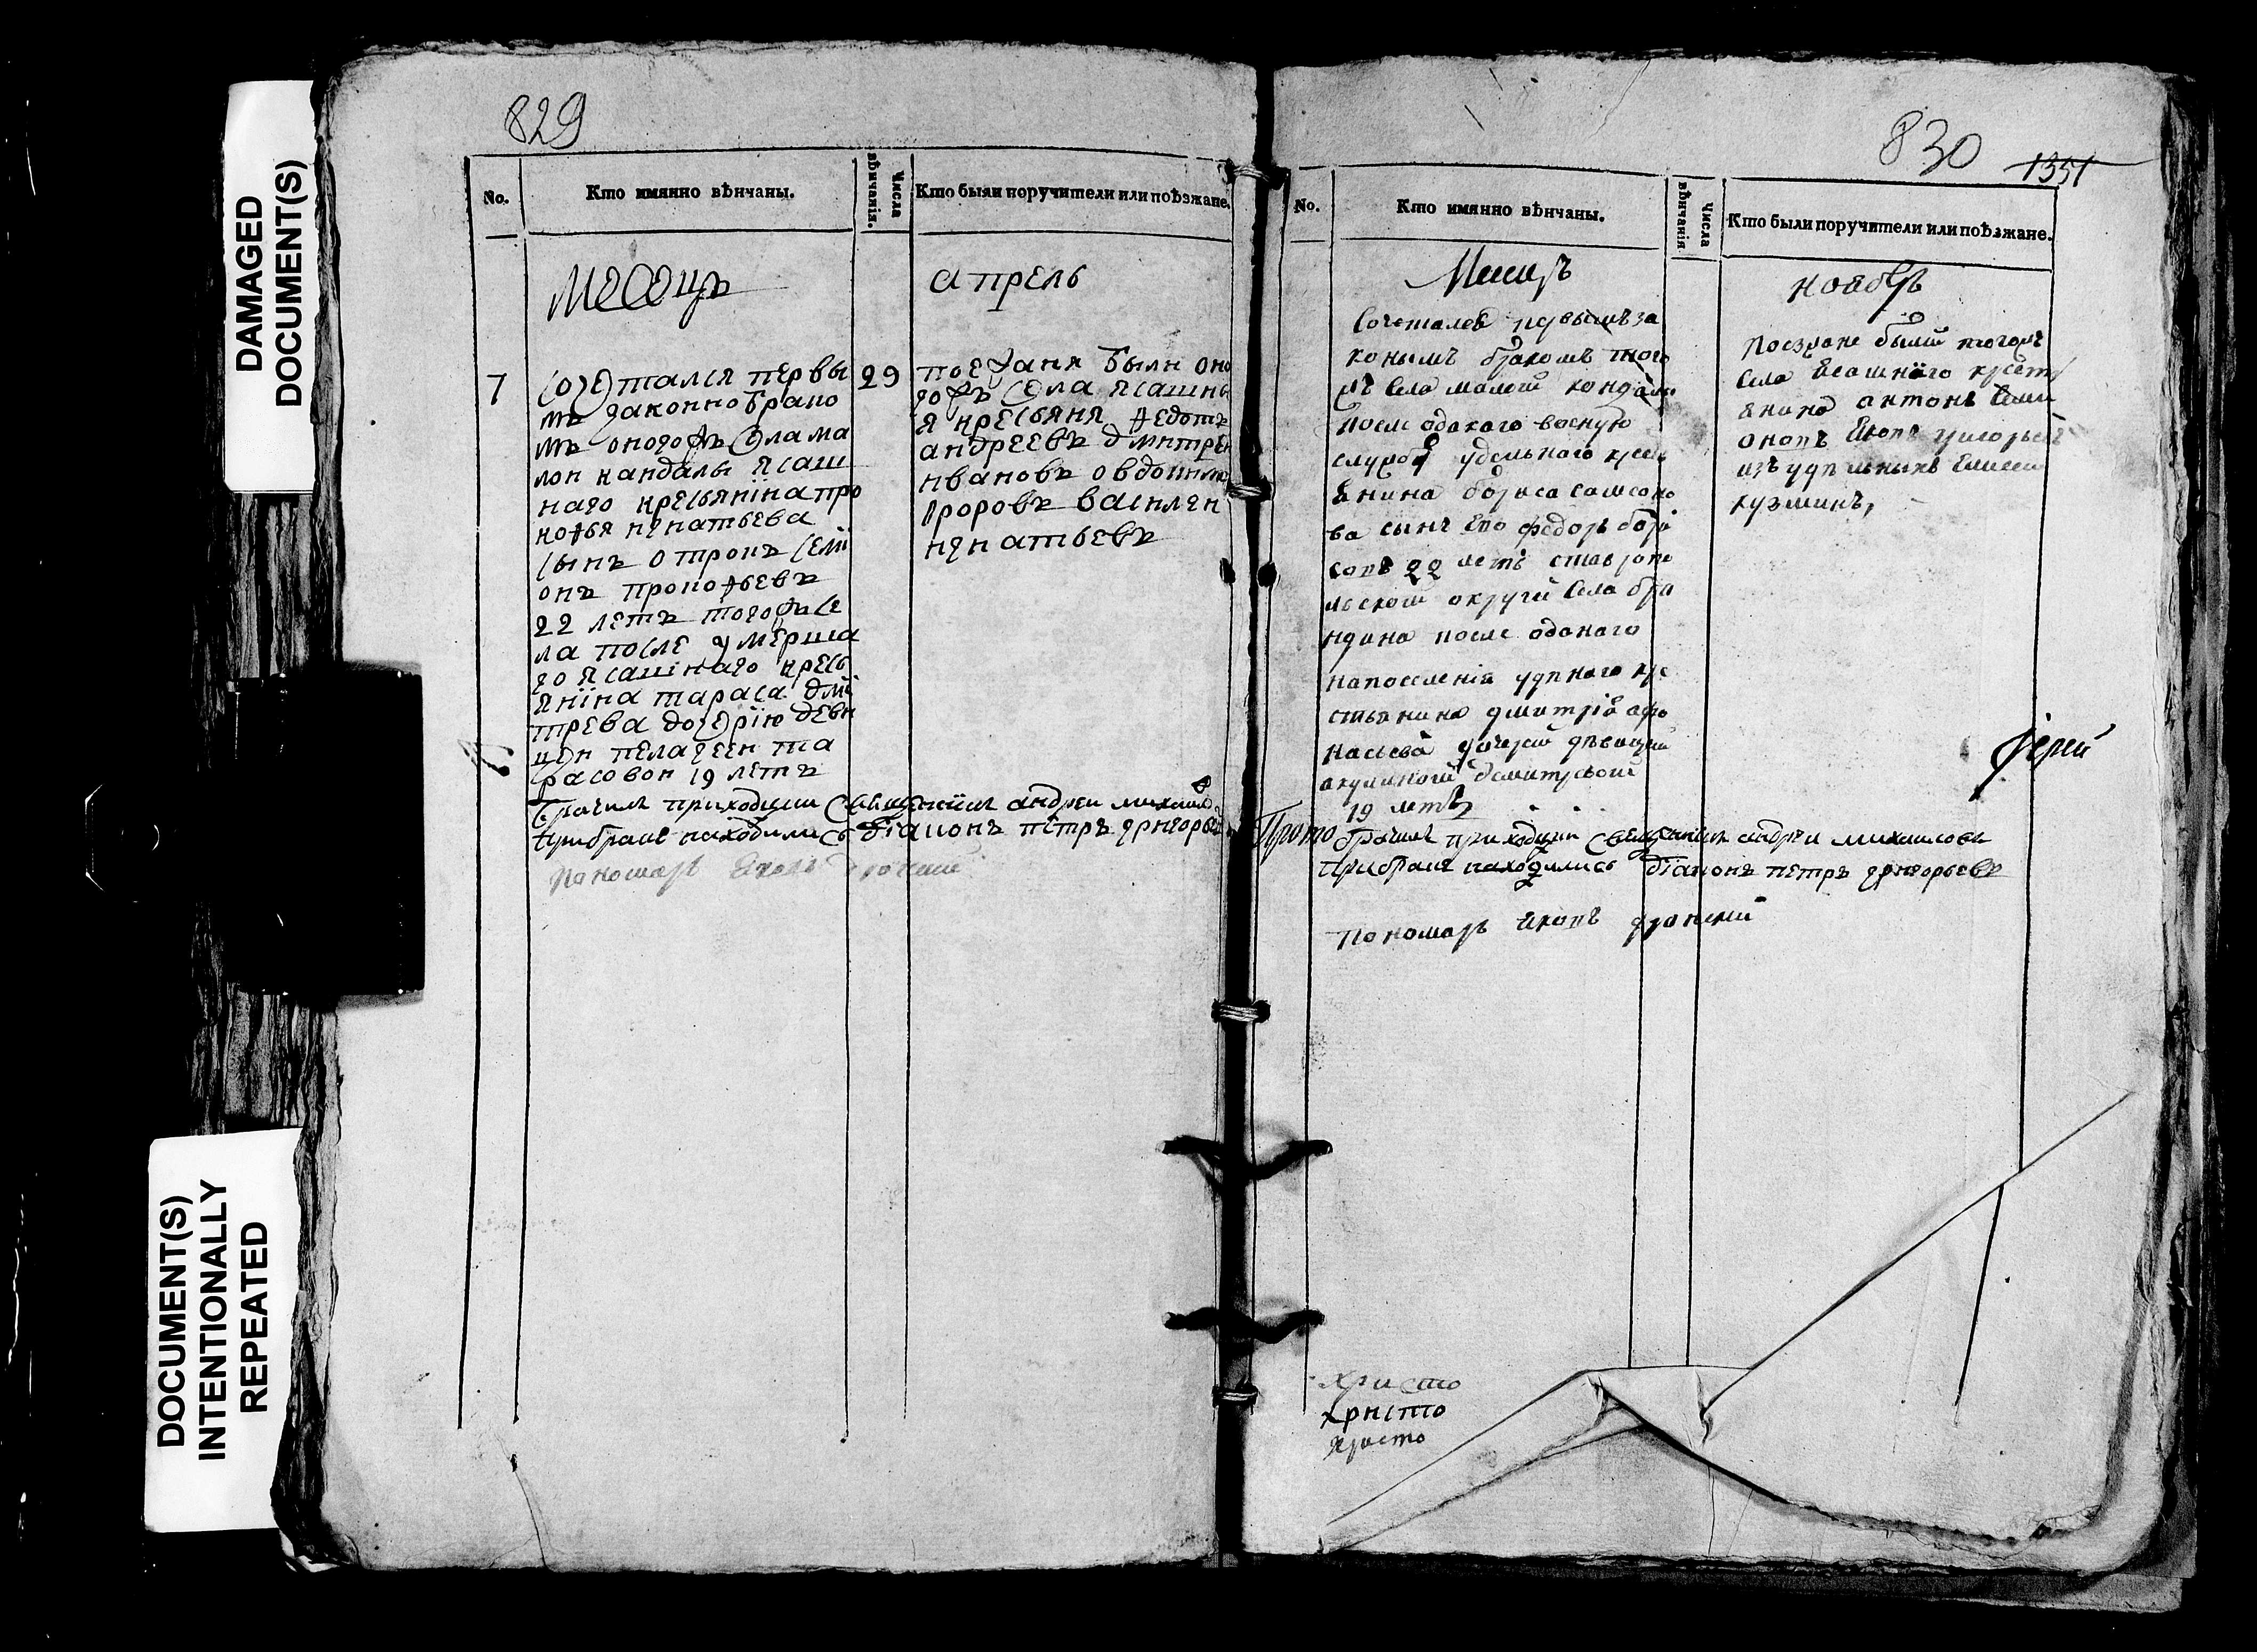 DAMAGED
DOCUMENT(S)
DOCUMENT(S)
INTENTIONALLY
REPEATED
829
No.
Кто имянно вѣнчаны.
Числа
вѣнчанія.
Кто были поручители или поѣзжане.
месецъ
апрель
7
сочетался первы
29
мъ законно брако
мъ оногожъ села ма
лои кандалы ясаш
наго кресьяніна про
кофья игнатьева
сынъ отрокъ семі
онъ прокофьевъ
22 летъ тогожъ се
ла после умерша
го ясашнаго кресь
яніна тараса дми
трева дочерію деви
цеи пелагееи та
расовои 19 летъ
поезжаня были оно
гожъ села ясашны
я кресьяня федотъ
андреевъ дмитреи
ивановъ овдоким
ѳроровъ василеи
игнатьевъ
Брачилъ приходцкии священникъ андреи михаило
При браке находились діаконъ петръ григорьев
Пономарь Яковъ
830
1351
No.
Кто имянно вѣнчаны.
Числа
вѣнчанія
Кто были поручители или поѣзжане.
Месецъ
ноябрь
Сочеталса первымъ за
конымъ бракомъ того
жъ села малой кондалы
после одакаго воєную
службу удельного крест
янина бориса самсоно
ва сынъ его федоръ бори
совъ 22 летъ ставропо
льскои округи села бря
ндина после оданаго
на поселениія удлного кре
стьянина дмитрія афо
насьева дочерйй дѣвицей
акулиной дмитревой
19 летъ
Поезжане были тогожъ
села ясашнаго крест
янина антонъ Семи
оновъ Яковъ григорьев
изъ удельныхъ Елисеи
кузминъ,
іереи
Прото
брачилъ приходцкии священникъ андреи михаиловъ
При браке находились діаконъ петръ григорьевъ
Пономарь Яковъ
христо
христо
христо